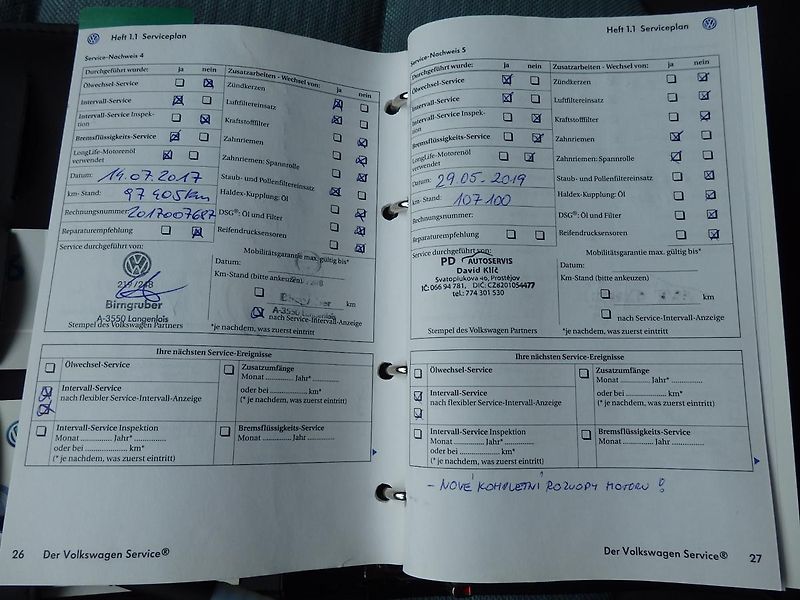 Heft 1.1 Serviceplan
Service-Nachweis 4
Durchgeführt wurde: ja nein
Ölwechsel-Service
Intervall-Service
Intervall-Service Inspek-
tion
Bremsflüssigkeits-Service
LongLife-Motorenöl
verwendet
Datum: 14.07.2017
km-Stand: 97405km
Rechnungsnummer: 2017007687
Reparaturempfehlung
Service durchgeführt von:
219/248
Birngruber
A-3550 Langenlois
Stempel des Volkswagen Partners
Zusatzarbeiten - Wechsel von: ja nein
Zündkerzen
Luftfiltereinsatz
Kraftstofffilter
Zahnriemen
Zahnriemen: Spannrolle
Staub- und Pollenfiltereinsatz
Haldex-Kupplung: Öl
DSG®: Öl und Filter
Reifendrucksensoren
Mobilitätsgarantie max. gültig bis*
Datum:
km-Stand (bitte ankreuzen)
A-3550 Langenlois
nach Service-Intervall-Anzeige
*je nachdem, was zuerst eintritt
Ihre nächsten Service-Ereignisse
Ölwechsel-Service
Intervall-Service
nach flexibler Service-Intervall-Anzeige
Intervall-Service Inspektion
Monat .............. Jahr*..............
oder bei .................... km*
(* je nachdem, was zuerst eintritt)
Zusatzumfänge
Monat .............. Jahr..............
oder bei .................... km*
(* je nachdem, was zuerst eintritt)
Bremsflüssigkeits-Service
Monat .............. Jahr..............
26 Der Volkswagen Service®
Heft 1.1 Serviceplan
Service-Nachweis 5
Durchgeführt wurde: ja nein
Ölwechsel-Service
Intervall-Service
Intervall-Service Inspek-
tion
Bremsflüssigkeits-Service
LongLife-Motorenöl
verwendet
Datum: 29.05.2019
km-Stand: 107100
Rechnungsnummer:
Reparaturempfehlung
Service durchgeführt von:
PD AUTOSERVIS
David Klíč
Svatoplukova 46, Prostějov
IČ: 066 94 781, DIČ: CZ8201054477
tel.: 774 301 530
Stempel des Volkswagen Partners
Zusatzarbeiten - Wechsel von: ja nein
Zündkerzen
Luftfiltereinsatz
Kraftstofffilter
Zahnriemen
Zahnriemen: Spannrolle
Staub- und Pollenfiltereinsatz
Haldex-Kupplung: Öl
DSG®: Öl und Filter
Reifendrucksensoren
Mobilitätsgarantie max. gültig bis*
Datum:
Km-Stand (bitte ankreuzen)
km
nach Service-Intervall-Anzeige
*je nachdem, was zuerst eintritt
Ihre nächsten Service-Ereignisse
Ölwechsel-Service
Intervall-Service
nach flexibler Service-Intervall-Anzeige
Intervall-Service Inspektion
Monat .............. Jahr*..............
oder bei .................... km*
(* je nachdem, was zuerst eintritt)
Zusatzumfänge
Monat .............. Jahr*..............
oder bei .................... km*
(* je nachdem, was zuerst eintritt)
Bremsflüssigkeits-Service
Monat .............. Jahr..............
- NOVÉ KOMPLETNÍ ROZVODY MOTORU !
Der Volkswagen Service® 27